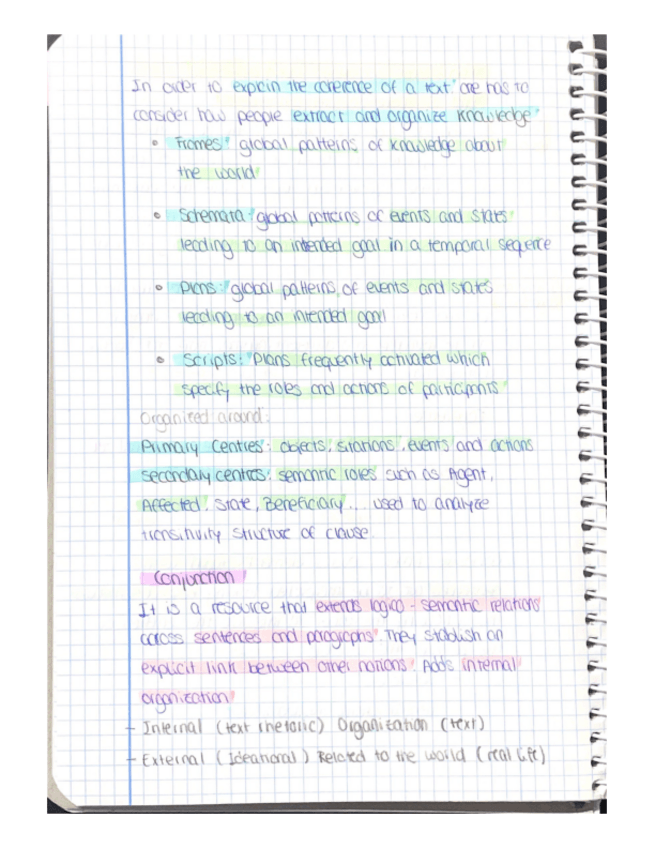 In order to explain the coherence of a text one has to
consider how people extract and organize knowledge
• Frames: global patterns of knowledge about
the world
• Schemata: global patterns of events and states
leading to an intended goal in a temporal seqence
• Plans: global patterns of events and states
leading to an intended goal
• Scripts: Plans frequently activated which
specify the roles and actions of participants
Organized around:
Primary Centres: objects, sitations, events and actions
secondary centres: semantic roles such as Agent,
Affected, State, Beneficiary... used to analyze
transitivity structure of clause.
Conjunction
It is a resource that extends logico-semantic relations
across sentences and paragraphs. They stablish an
explicit link between other notions. Adds internal
organization
- Internal (text rhetoric) Organization (text)
- External (Ideational) Related to the world (real life)